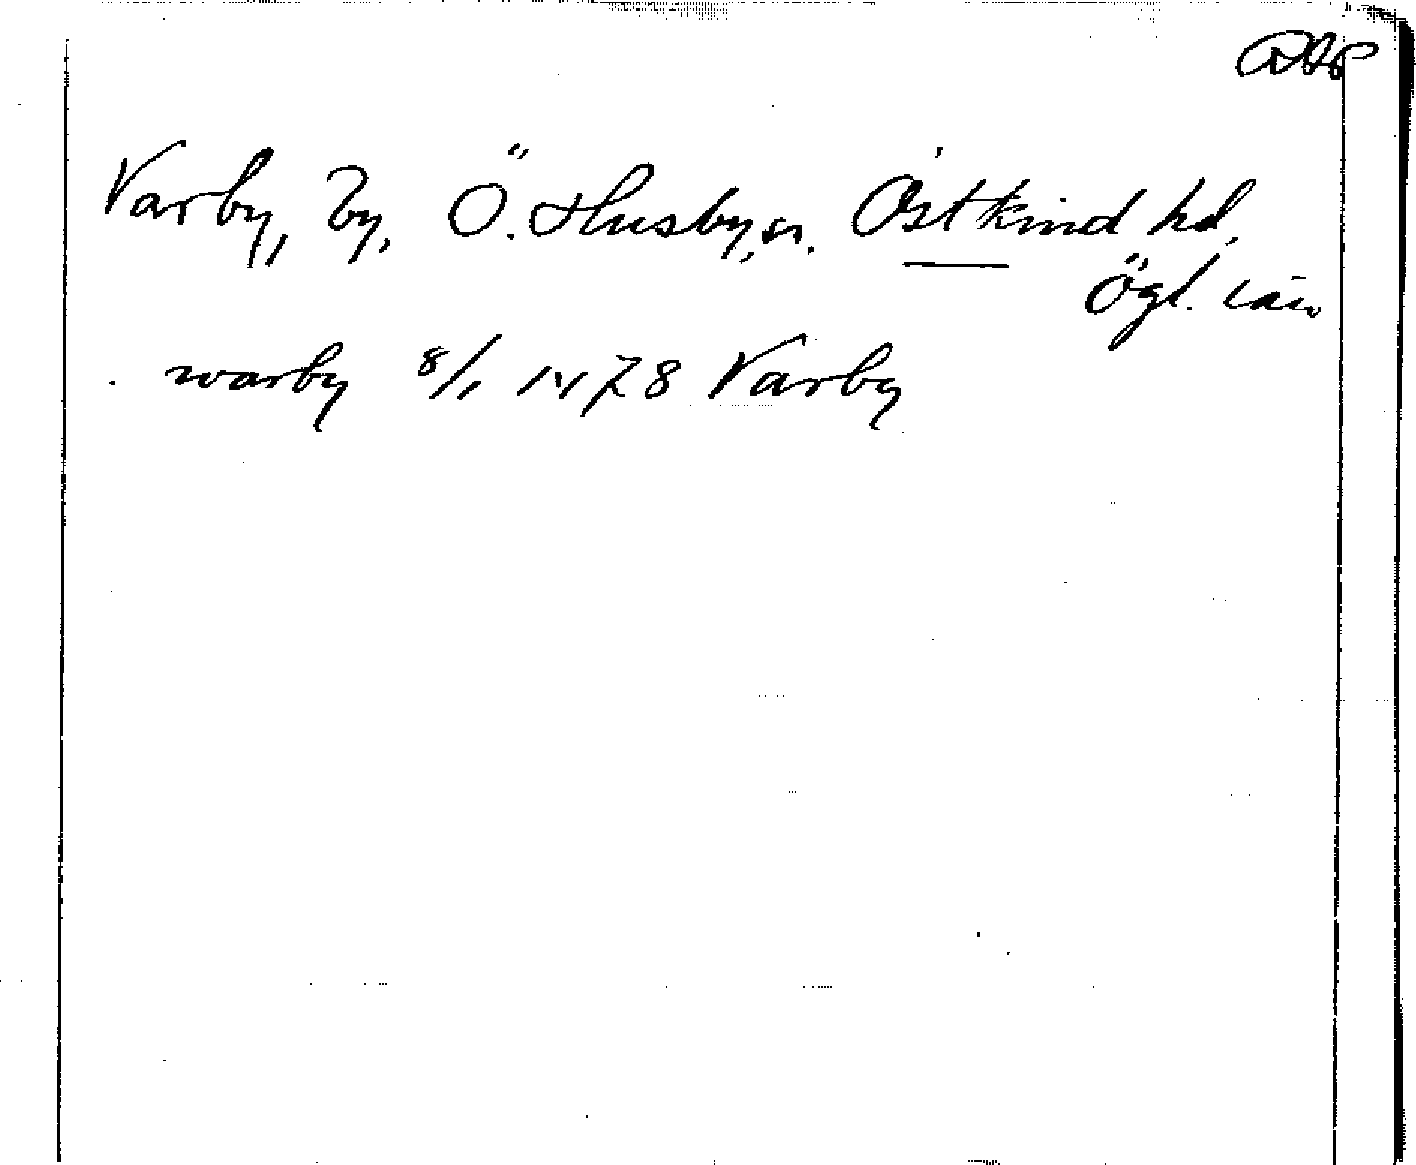 Varby, by, Ö. Husby, sn. Östkind hd,
Ögl. län
warby 8/1 1478 Varby